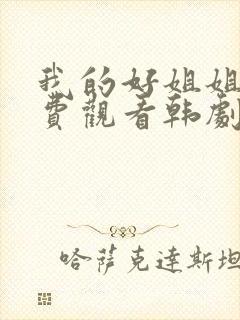 我的好姐姐
费觀看韩劇
哈萨克達斯坦